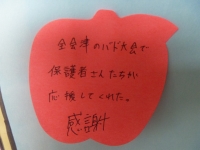 全会津のバド大会で
保護者さんたちが
応援してくれた。
感謝